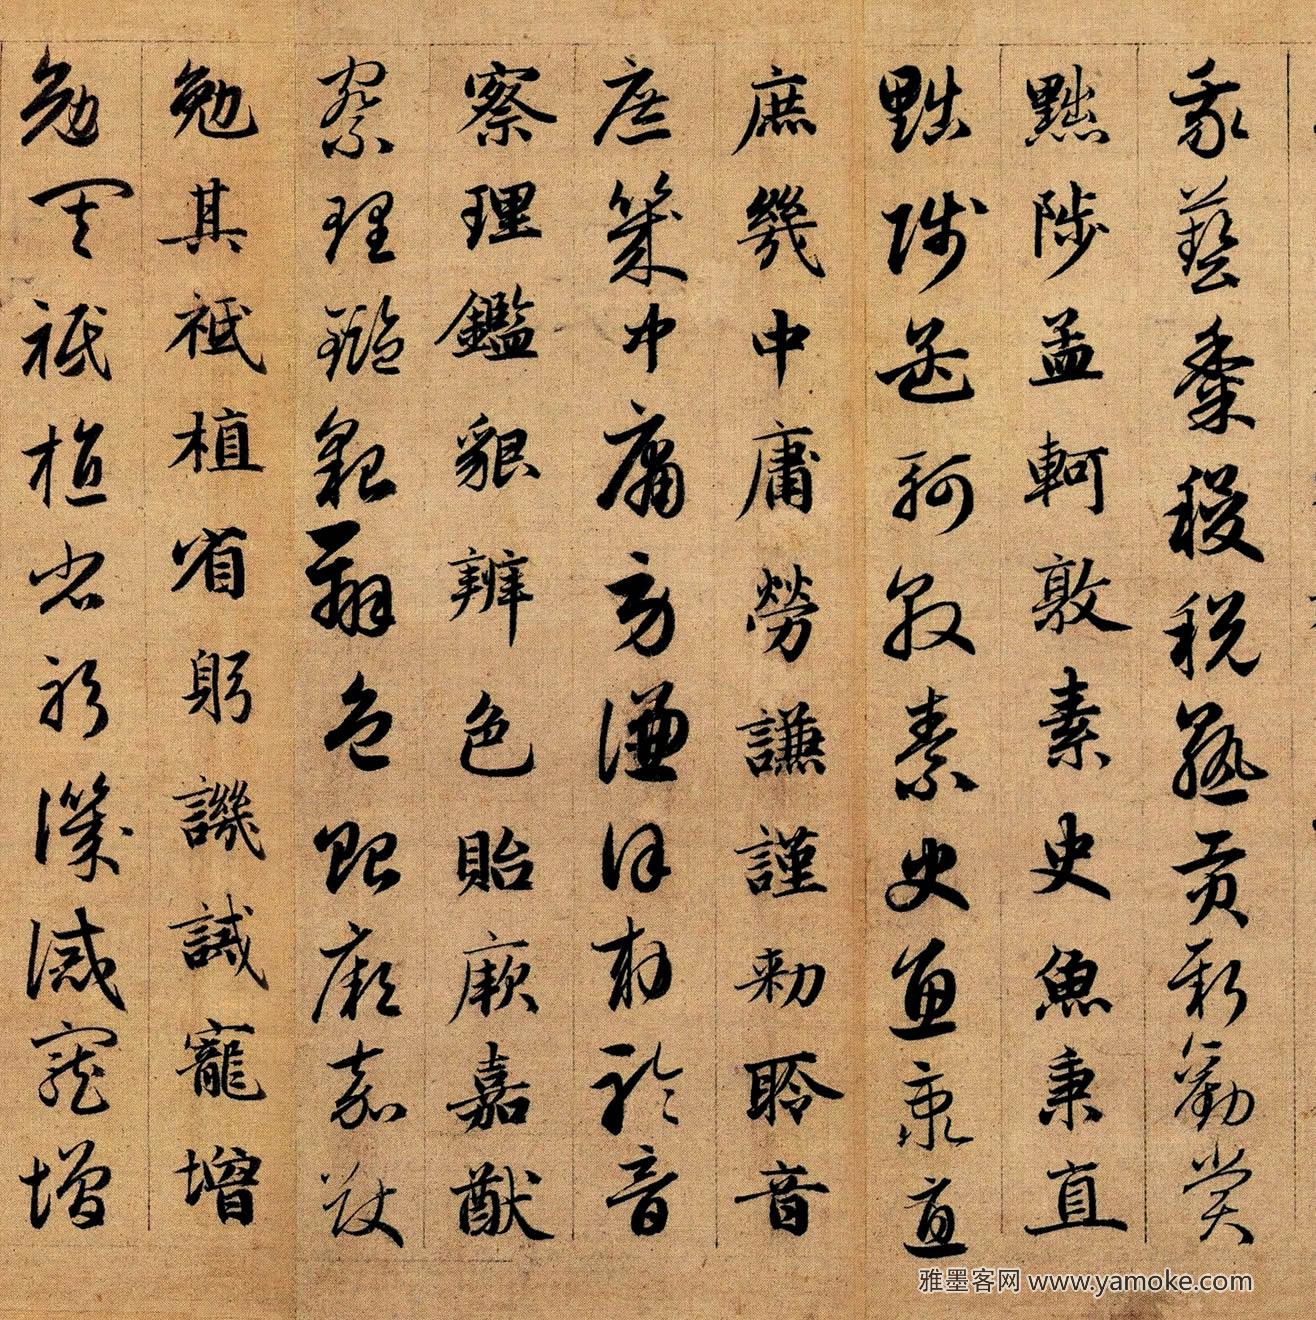 我藝黍稷稅熟貢新勸賞
黜陟孟軻敦素史魚秉直
黜陟孟軻敦素史魚秉直
庶幾中庸勞謙謹勑聆音
庶幾中庸勞謙謹勑聆音
察理鑑貌辨色貽厥嘉猷
察理鑑貌辨色貽厥嘉猷
勉其祗植省躬譏誡寵增
勉其祗植省躬譏誡寵增
雅墨客网 www.yamoke.com